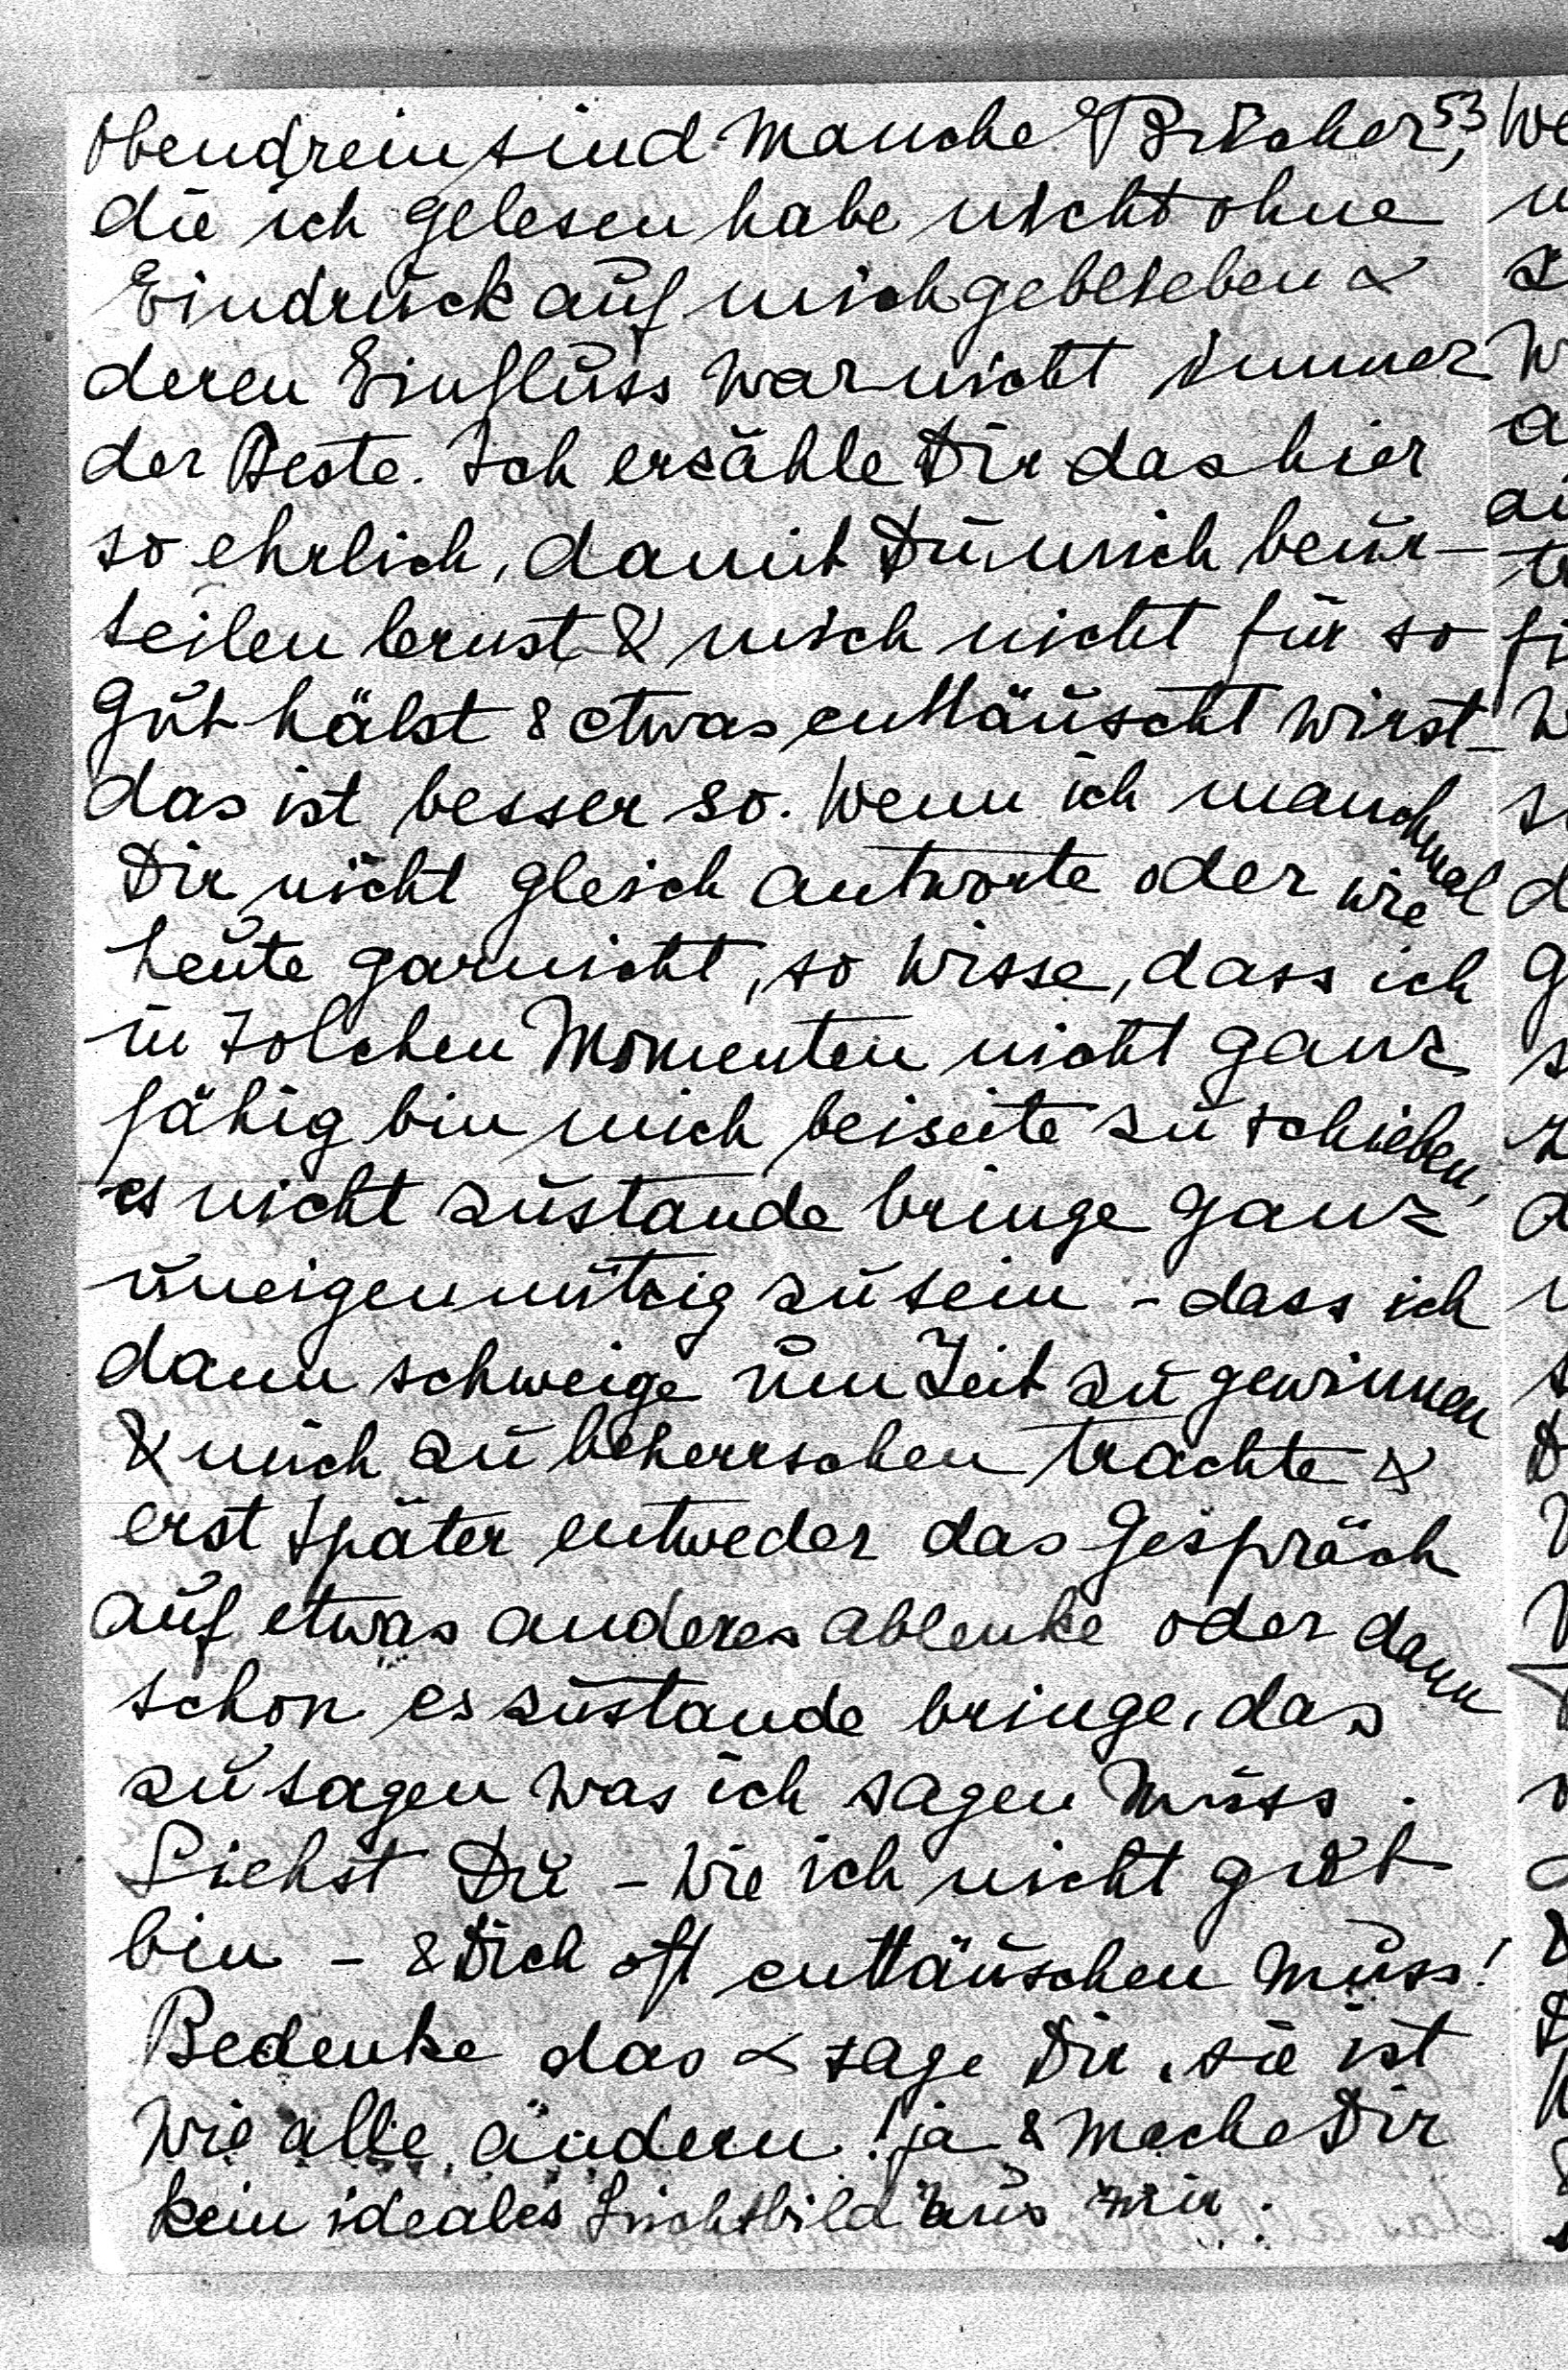 Obendrein sind manche Bücher, 53
die ich gelesen habe nicht ohne
Eindruck auf mich geblieben &
deren Einfluss war nicht immer
der Beste. Ich erzähle Dir das hier
so ehrlich, damit Du mich beur-
teilen lernst & mich nicht für so
gut hälst & etwas enttäuscht wirst –
das ist besser so. Wenn ich manchmal
Dir nicht gleich antworte oder wie
heute garnicht, so wisse, dass ich
in solchen Momenten nicht ganz
fähig bin mich beiseite zu schieben,
es nicht zustande bringe ganz
uneigennützig zu sein – dass ich
dann schweige um Zeit zu gewinnen
& mich zu beherrschen trachte &
erst später entweder das Gespräch
auf etwas anderes ablenke oder dann
schon es zustande bringe, das
zu sagen was ich sagen muss.
Siehst Du – wie ich nicht gut
bin – & Dich oft enttäuschen muss!
Bedenke das & sage Dir, sie ist
wie alle andern! ja & mache Dir
kein ideales Lichtbild aus mir.